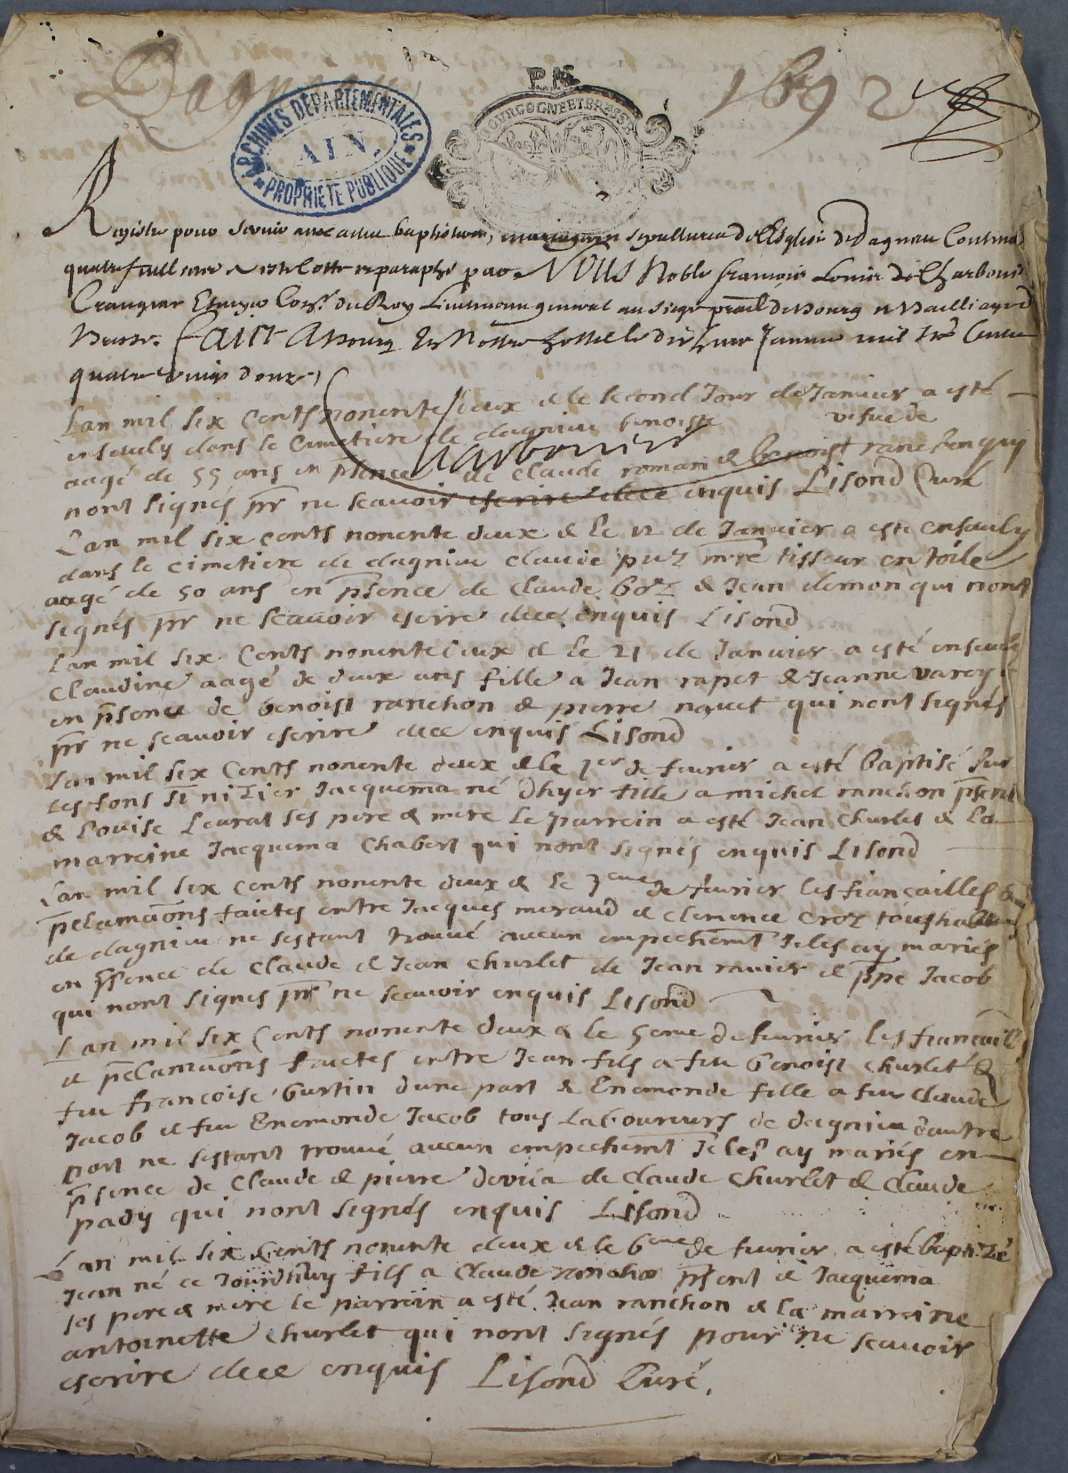 Dagneu
1692
P.RE
BOVRGOGNE ET BRESSE
ARCHIVES DÉPARTEMENTALES
AIN.
PROPRIÉTÉ PUBLIQUE
Registre pour servir aux actes baptistaires, mariages sepultures de l'Esglise de Dagneu Contenant
quatre feuilletz cottez paraphé par Nous Noble françois Louis de Charbonnier
Crangeac Escuyer Conr. du Roy Lieutenant general au siege preal. de bourg
Bresse. faict a Bourg En Nostre hostel le Janvier mil six Cents
quatre vingt douze
Charbonnier
Lan mil six cents nonente deux & le second Jour de Janvier a esté
ensevely dans le Cimetiere de dagnieu benoiste vefve de
aagé de 55 ans en psence de claude roman & benoist ranchon qui
nont signes pr ne scavoir escrire de ce enquis Lisond Curé
Lan mil six cents nonente deux & le 12 de Janvier a esté ensevely
dans le cimetiere de dagnieu claude puz mre tisseur en toile
aagé de 50 ans en psence de claude & Jean demon qui nont
signés pr ne scavoir escrire de ce enquis Lisond
Lan mil six Cents nonente deux & le 21 de Janvier a esté ensevely
Claudine aagé de deux ans fille a Jean rapet & Jeanne varey
en psence de benoist ranchon & pierre navet qui nont signés
pr ne scavoir escrire de ce enquis Lisond
Lan mil six Cents nonente deux & le 1er de fevrier a esté baptisé sur
les fons st nizier Jacquema né dhyer fille a michel ranchon psent
& Louise Leurat ses pere & mere le parrein a esté Jean Churlet & la
marreine Jacquema Chabert qui nont signés enquis Lisond
Lan mil six cents nonente deux & le de fevrier les fiançailles &
pclamaons faictes entre Jacques meraud & clemence croz tous
de dagnieu ne sestant trouvé aucun empechemt Je les ay mariés
en psence de Claude & Jean Churlet de Jean ravier & phpe Jacob
qui nont signes pr ne scavoir enquis Lisond
Lan mil six Cents nonente deux & le 5eme de fevrier les fiancailles
& pclamaons faictes entre Jean fils a feu benoist churlet &
feu francoise burtin dune part & Enemonde fille a feu Claude
Jacob & feu Enemonde Jacob tous Laboureurs de dagnieu dautre
part ne sestant trouvé aucun empechemt Je les ay mariés en
psence de Claude & pierre de Claude Churlet & Claude
pady qui nont signés enquis Lisond
Lan mil six Cents nonente deux & le 6eme de fevrier a esté baptizé
Jean né ce Jourdhuy fils a Claude ranchon psent & Jacquema
ses pere & mere le parrein a esté Jean ranchon & la marreine
antoinette churlet qui nont signés pour ne scavoir
escrire de ce enquis Lisond Curé.